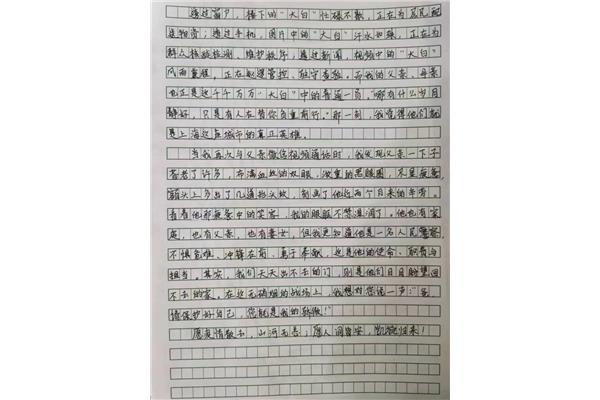 透过窗户，楼下的“大白”忙碌不歇，正在为居民配
送物资；透过手机，图片中的“大白”汗水如珠，正在为
群众核酸检测、维护秩序；透过新闻，视频中的“大白”
风雨兼程，正在轮逻管控、驻守查验。而我的父亲、母亲
也正是这千千万万“大白”中的普通一员。“哪有什么岁月
静好，只是有人在替你负重前行。”那一刻，我觉得他们就
是上海这座城市的真正英雄。
当我再次与父亲微信视频通话时，我发现父亲一下子
苍老了许多，布满血丝的双眼，浓重的黑眼圈，不显疲惫，
额头上多出了几道抬头纹，刻画了他近两个月来的辛劳。
看着他那疲惫中的笑容，我的眼眶不禁湿润了。他也有家
庭，也有父亲，也有妻女，但我更知道他是一名人民警察
不惧危难、冲锋在前、勇于奉献，这是他的使命、职责与
担当。其实，我们天天出不去的门，则是他们日日盼望回
不去的家。在这无硝烟的战场上，我想对您说一声：“爸，
请保护好自己，您就是我的骄傲！”
愿疫情散去，山河无恙；愿人间皆安，凯旋归来！